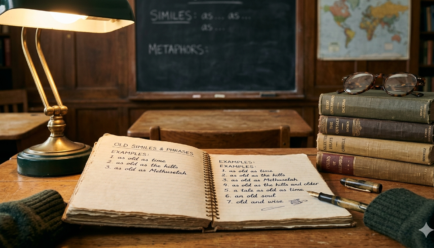 SIMILES: as... as...
as... as...
METAPHORS:
OLD SIMILES & PHRASES
EXAMPLES:
1. as old as time
2. as old as the hills
3. as old as Methuselah
EXAMPLES:
EXAMPLES:
1. as old as time
2. as old as the hills
3. as old as Methuselah
5. as old as the hills and older
5. a tale as old as time
6. an old soul
7. old and wise